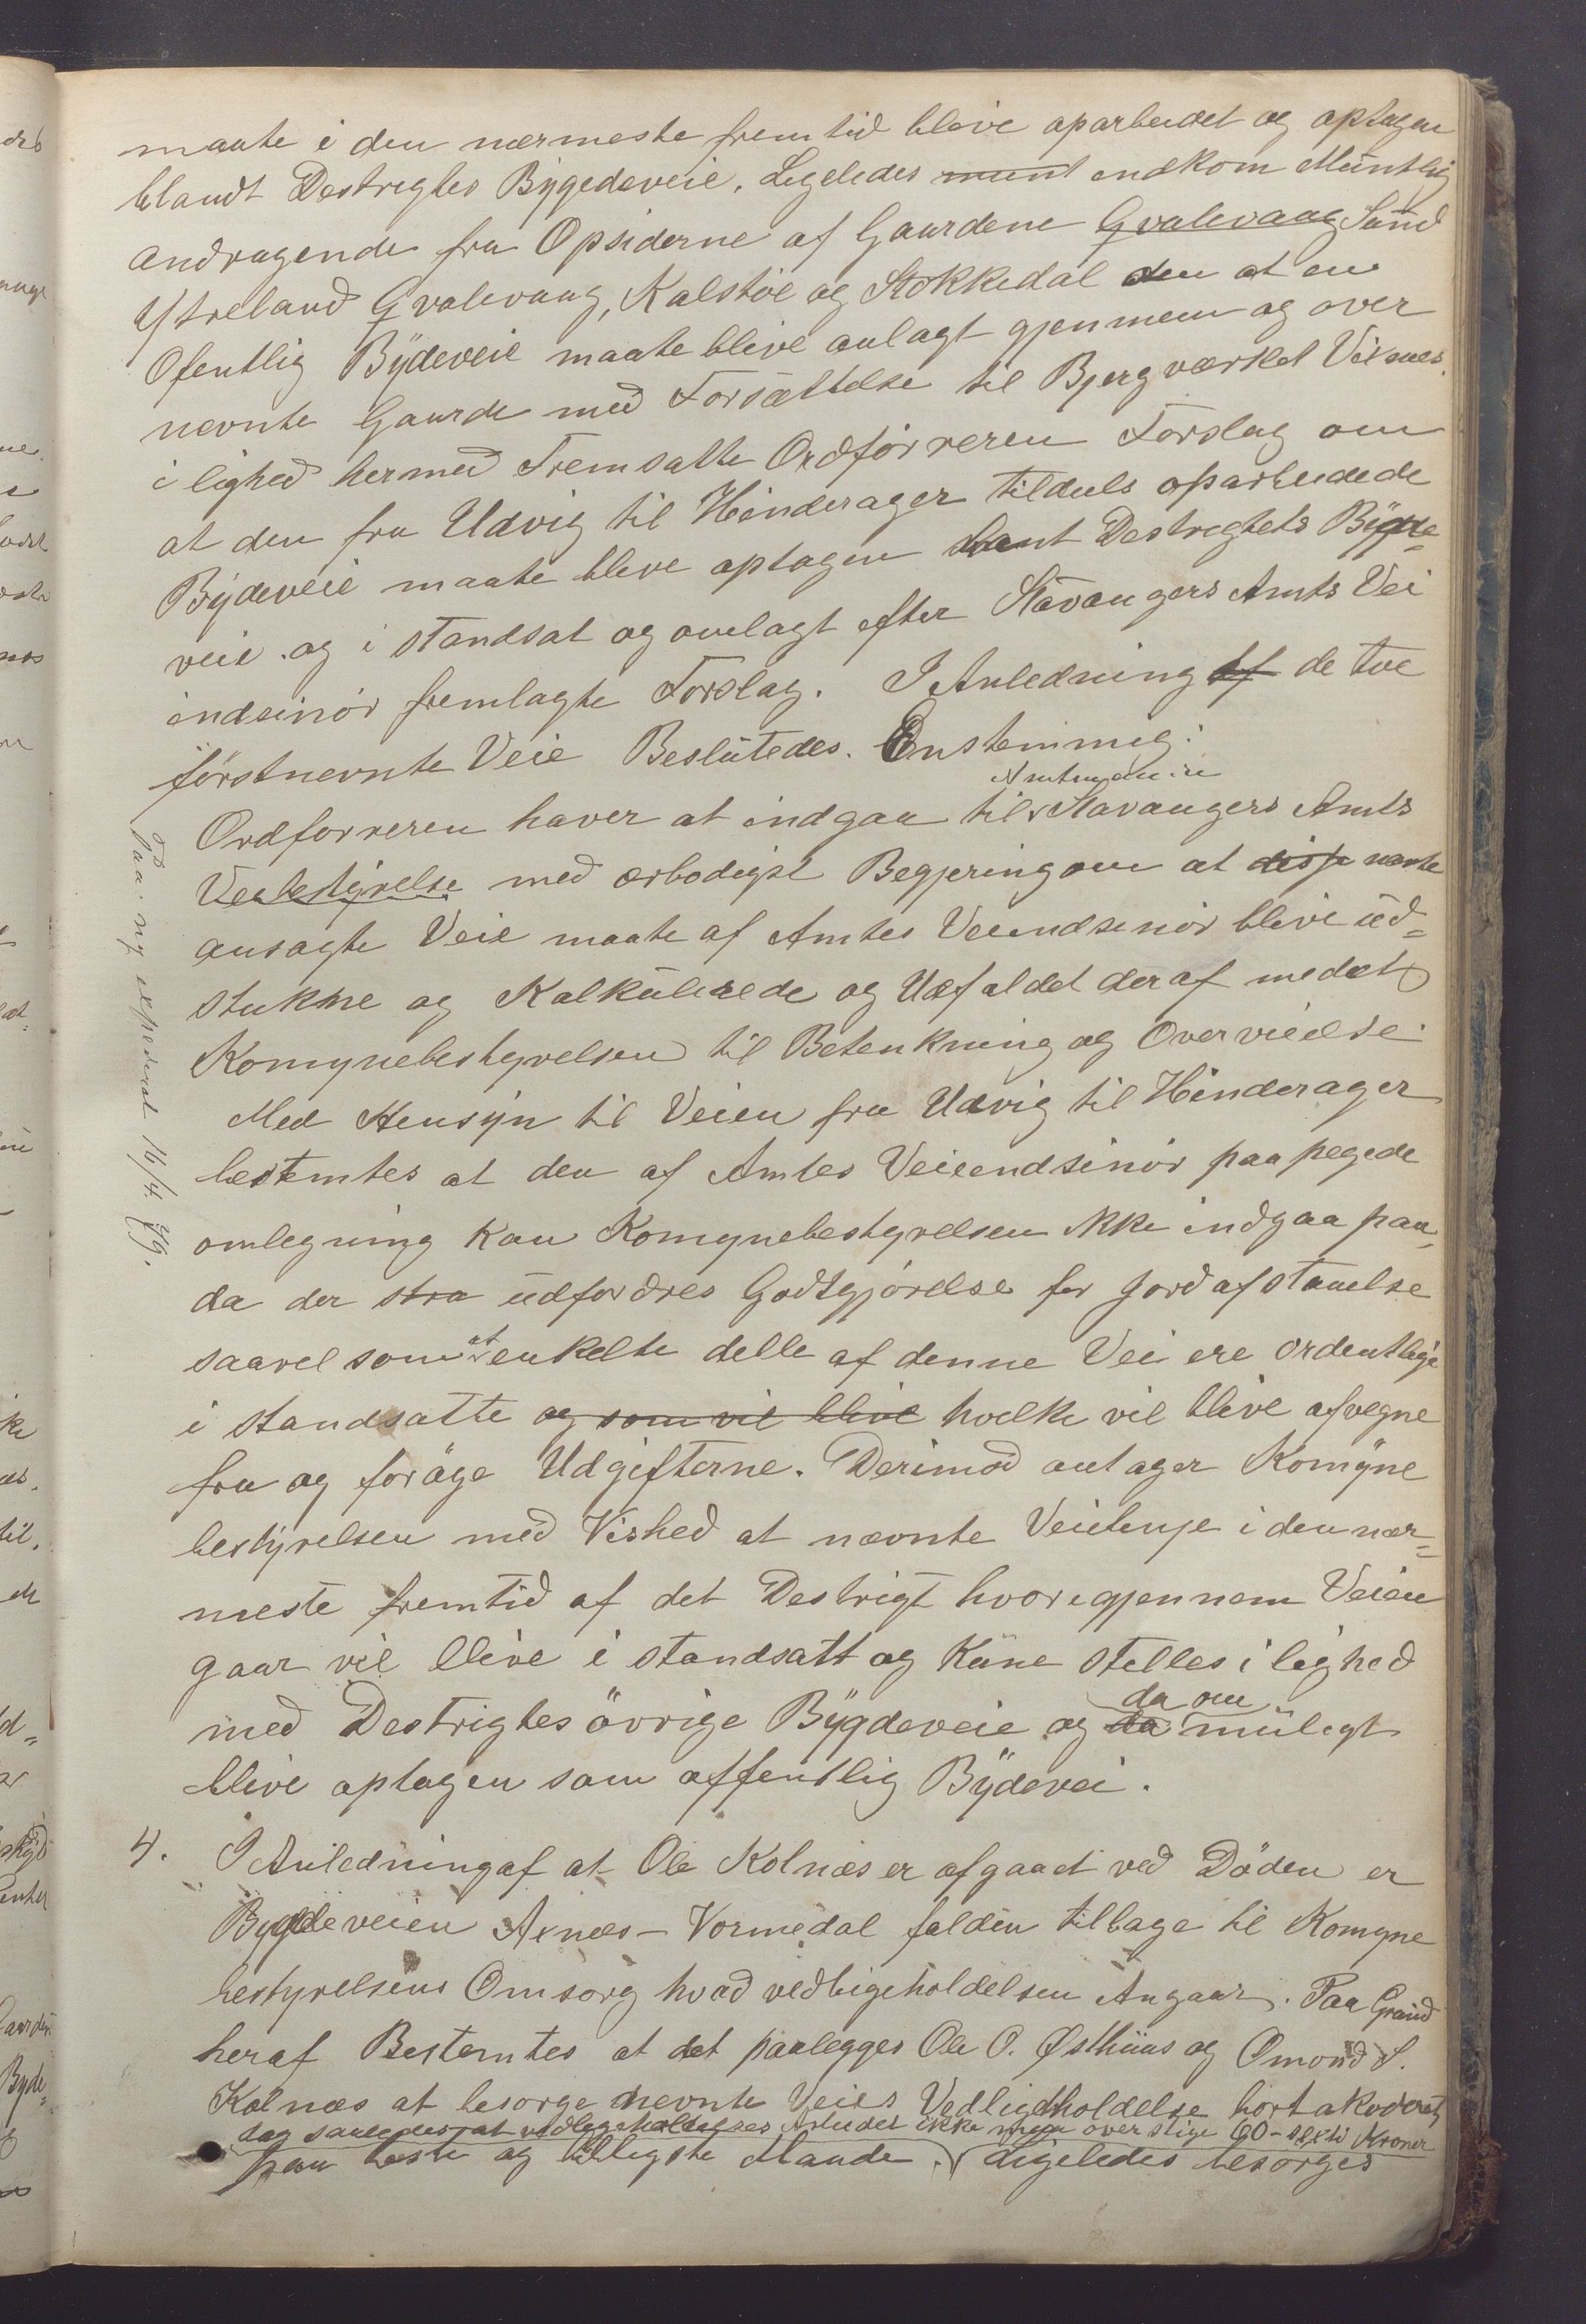 maate i den nærmeste fremtid blive oparbeidet og optagen
blandt Destrigtes Bygedeveie. Ligeledes munt endkom Muntlig
andragende fra Opsiderne af Gaardene Gvalevaag Sund
Ytreland Gvalevaag, Kalstøe og Stokkedal den at en
Ofentlig Bydeveie maate blive anlagt gjennem og over
nevnte Gaarde med Forsættelse til Bjergværket Visnes.
i lighed hermed Fremsatte Ordførreren Forslag om
at den fra Udvig til Hinderager tildels oparbeidede
Bydeveie maate bleve optagen blant Destrigtets Bygde-
veie og i standsat og omlagt efter Stavangers Amts Vei
indsinør fremlagte Forslag. I Anledning af de tve
førstnevnte Veie Beslutedes. Enstemmig:
Amtmanden
Ordforreren haver at indgaa til Stavangers Amts
Veibestyrelse med ærbødigst Begjering om at disse nævte
ansagte Veie maate af Amtes Veiindsenør blive ud=
stukne og Kalkulerede og Udfaldet deraf meddelt
Komynebestyrelsen til Betenkning og Overvieelse.
Med Hensyn til Veien fra Udvig til Hinderager
bestemtes at den af Amtes Veieendsinør paapegede
omlegning kan Komynebestyrelsen ikke indgaa paa,
da der stra udfordres Godtgjørelse for jordafstaaelse
saavel som at enkelte delle af denne Vei ere ordentlige
i standsatte og som vil blive hvelke vil blive afvegne
fra og forøge Udgifterne. Derimod antager Komyne
bestyrelsen med Vished at nævnte Veilenje i den nær=
meste fremtid af det Destrigt hvorigjennem Veien
gaar vil blive i standsatt og Kune stelles i lighed
med Destrigtes øvrige Bygdeveie og da da om mulegt
blive optagen som offentlig Bydevei.
4. I Anledning af at Ole Kolnæs er afgaaet ved Døden er
Bygdeveien Axnæs-Vormedal falden tilbage til Komyne
bestyrelsens Omsorg hvad vedligeholdelsen Angaar. Paa Grund
heraf Bestemtes at det paalegges Ole O. Østhuus og Omond S.
Kolnæs at besorge nevnte Veies Vedligeholdelse bortakoderet
dog saaledes at vedlegeholdelses Arbeidet ikke maa overstige 60- sexti Kroner
paa beste og billigste Maade. Ligeledes besørges
Paa ny expederet 16/4 79.